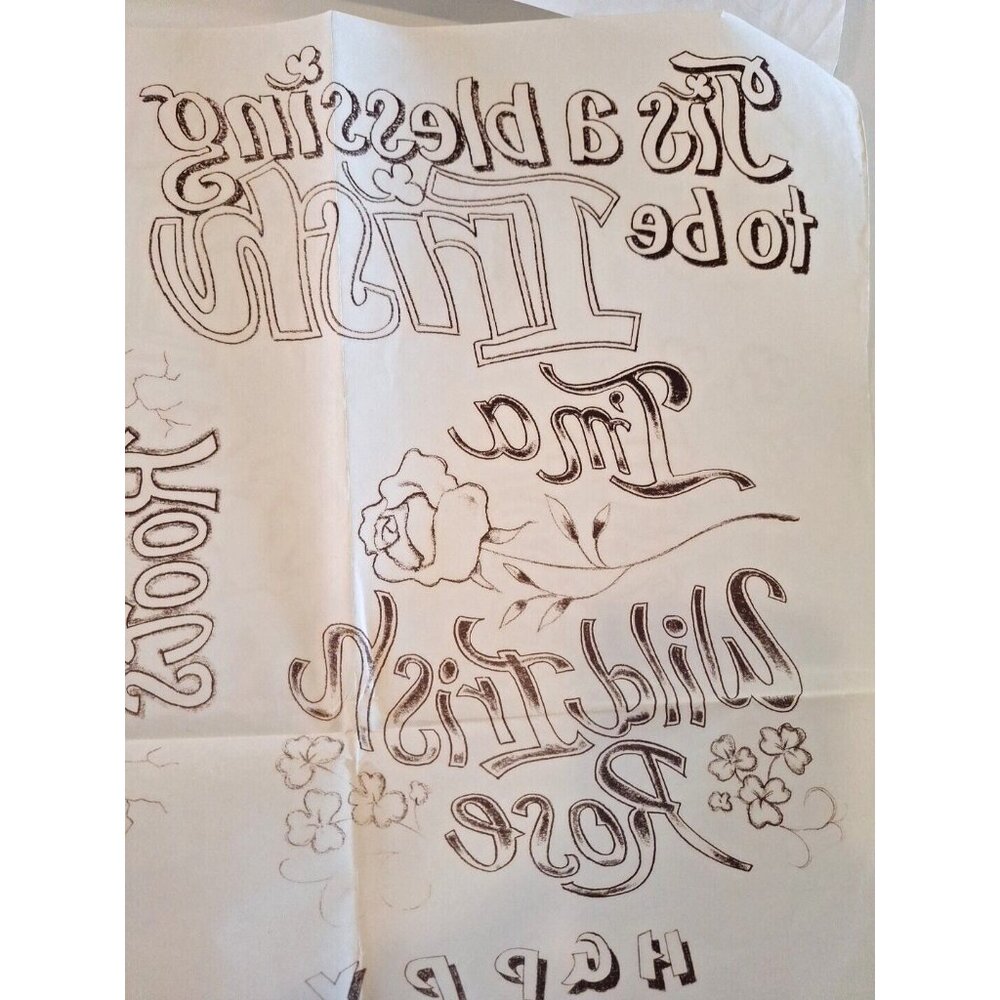 Tis a blessing
to be
Irish
I'm a
Wild Irish
Rose
Room
HAPPY